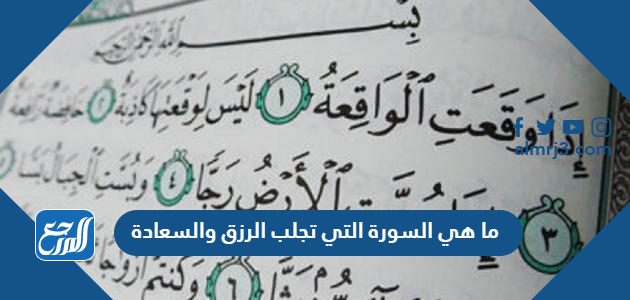 بِسْمِ اللَّهِ الرَّحْمَٰنِ الرَّحِيمِ
إِذَا وَقَعَتِ ٱلْوَاقِعَةُ ١ لَيْسَ لِوَقْعَتِهَا كَاذِبَةٌ ٢ خَافِضَةٌ
almrj3.com
ٱلْأَرْضُ رَجًّا ٤ وَبُسَّتِ ٱلْجِبَالُ بَسًّا
ما هي السورة التي تجلب الرزق والسعادة
المرجع
٣
٦ وَكُنتُمْ أَزْوَاجًا